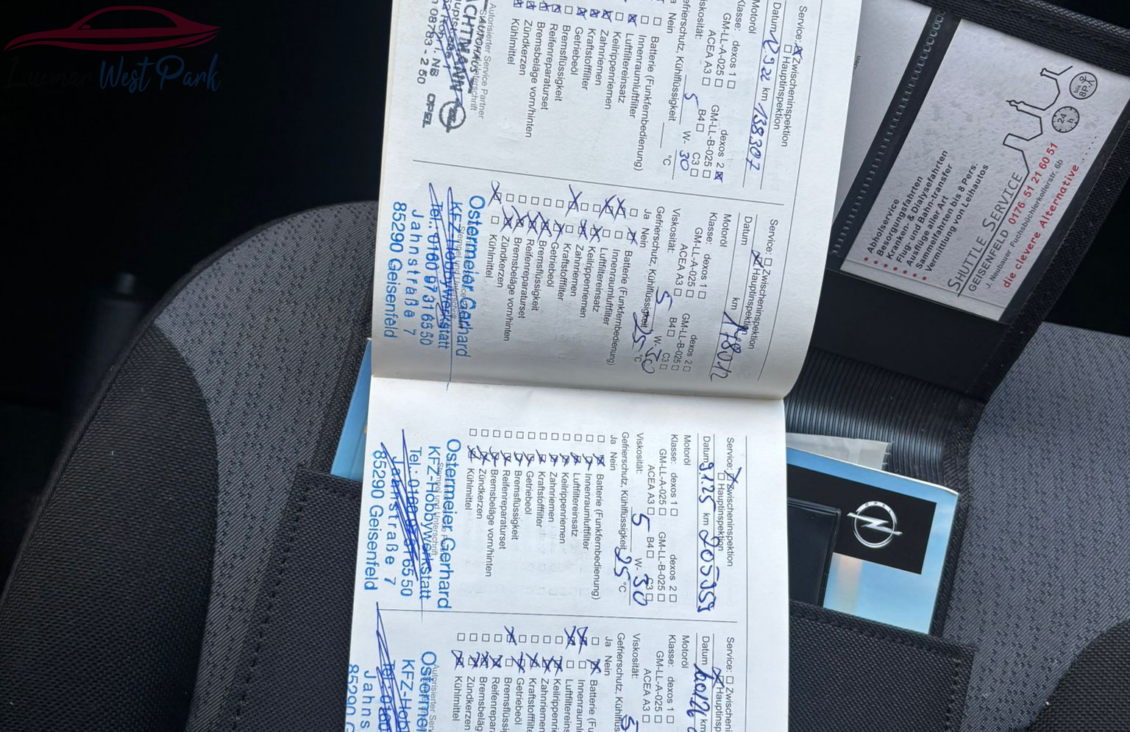 West Park
Service: ☒ Zwischeninspektion
☐ Hauptinspektion
Datum 12.9.22 km 138307
Motoröl
Klasse: dexos 1 ☐ dexos 2 ☒
GM-LL-A-025 ☐ GM-LL-B-025 ☐
ACEA A3 ☐ B4 ☐ C3 ☐
Viskosität: 5 W- 30
Gefrierschutz, Kühlflüssigkeit °C
Ja Nein
Batterie (Funkfernbedienung)
Innenraumluftfilter
Luftfiltereinsatz
Keilrippenriemen
Zahnriemen
Kraftstofffilter
Getriebeöl
Bremsflüssigkeit
Reifenreparaturset
Bremsbeläge vorn/hinten
Zündkerzen
Kühlmittel
Autorisierter Service Partner
OPEL
Service: ☐ Zwischeninspektion
☒ Hauptinspektion
Datum km
Motoröl
Klasse: dexos 1 ☐ dexos 2 ☐
GM-LL-A-025 ☐ GM-LL-B-025 ☐
ACEA A3 ☐ B4 ☐ C3 ☐
Viskosität: 5 W- 30
Gefrierschutz, Kühlflüssigkeit 25 °C
Ja Nein
Batterie (Funkfernbedienung)
Innenraumluftfilter
Luftfiltereinsatz
Keilrippenriemen
Zahnriemen
Kraftstofffilter
Getriebeöl
Bremsflüssigkeit
Reifenreparaturset
Bremsbeläge vorn/hinten
Zündkerzen
Kühlmittel
Ostermeier Gerhard
KFZ-Hobbywerkstatt
Tel.: 0160 97 31 65 50
Jahnstraße 7
85290 Geisenfeld
Service: ☒ Zwischeninspektion
☐ Hauptinspektion
Datum 9.1.25 km 205959
Motoröl
Klasse: dexos 1 ☐ dexos 2 ☐
GM-LL-A-025 ☐ GM-LL-B-025 ☐
ACEA A3 ☐ B4 ☐ C3 ☐
Viskosität: 5 W- 30
Gefrierschutz, Kühlflüssigkeit 25 °C
Ja Nein
Batterie (Funkfernbedienung)
Innenraumluftfilter
Luftfiltereinsatz
Keilrippenriemen
Zahnriemen
Kraftstofffilter
Getriebeöl
Bremsflüssigkeit
Reifenreparaturset
Bremsbeläge vorn/hinten
Zündkerzen
Kühlmittel
Ostermeier Gerhard
KFZ-Hobbywerkstatt
Jahnstraße 7
85290 Geisenfeld
Service: ☐ Zwischenin
☒ Hauptinsp
Datum km
Motoröl
Klasse: dexos 1 ☐
GM-LL-A-025 ☐
ACEA A3 ☐
Viskosität: 5
Gefrierschutz, Kühlflüs
Ja Nein
Batterie (Fu
Innenraum
Luftfilterein
Keilrippenri
Zahnriemen
Kraftstofffi
Getriebeöl
Bremsflüss
Reifenrepa
Bremsbeläg
Zündkerzen
Kühlmittel
Autorisierter Serv
Osterme
KFZ-Hob
Jahns
85290 G
• Abholservice
• Besorgungsfahrten
• Kranken- & Dialysefahrten
• Flug- und Bahn-transfer
• Ausflüge aller Art
• Sammelfahrten bis 8 Pers.
• Vermittlung von Leihautos
24 h
8P.
SHUTTLE SERVICE
GEISENFELD 0176 51 21 60 51
die clevere Alternative